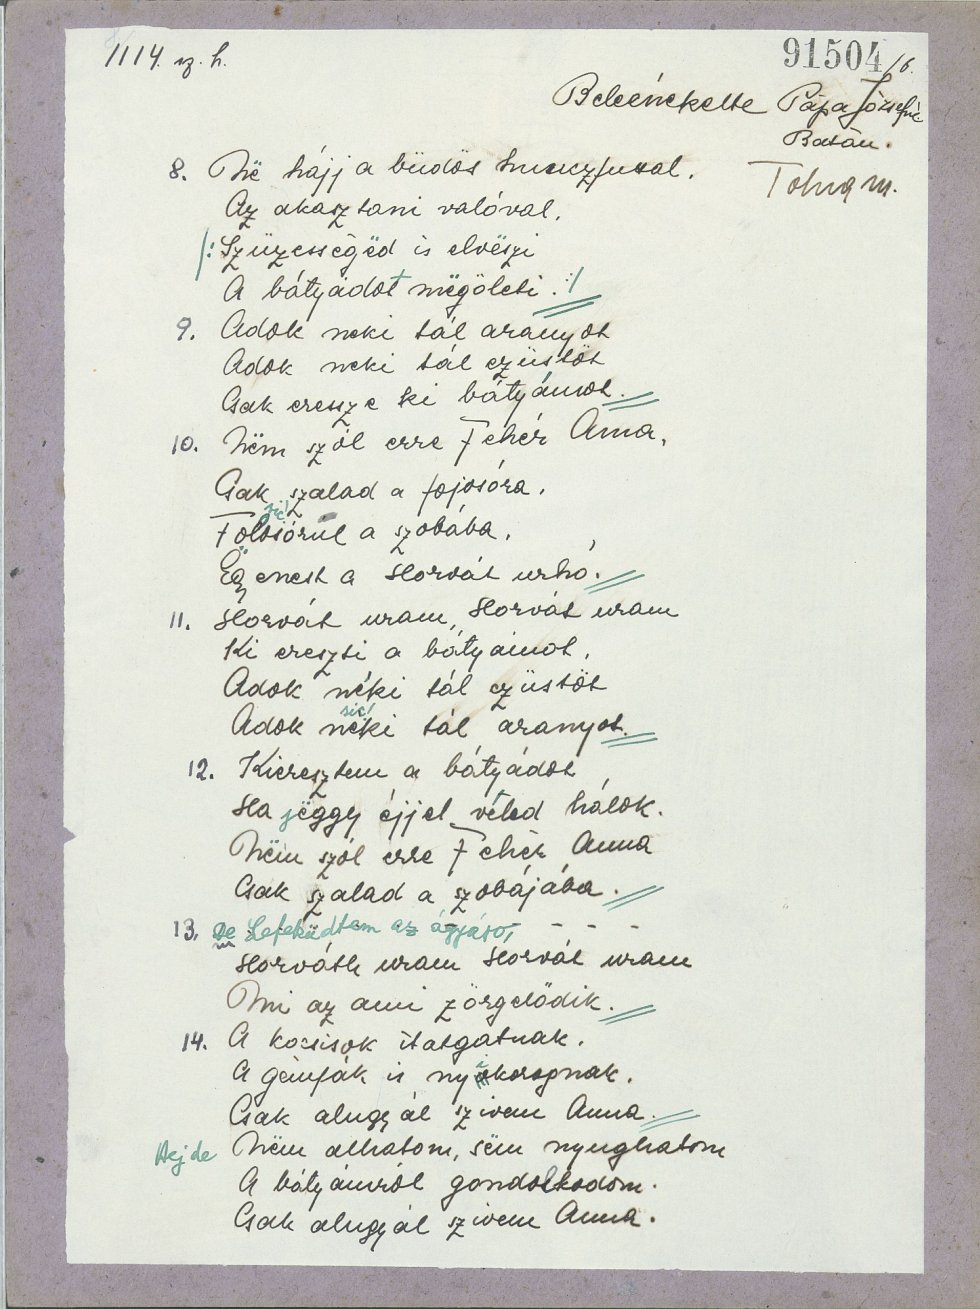 1114. sz. h.
91504/6.
Beleénekelte Pápa Józsefné
Batán.
Tolna m.
8. Në hájj a büdös huncz/utsal.
Az akasztani valóval,
/: Szüzességëd is elvëszi
A bátyádot mëgöleti. :/
9. Adok neki tál aranyot
Adok neki tál ezüstöt
Csak eressze ki bátyámot.
10. Nëm szól erre Fehér Anna,
Csak szalad a fojosóra,
sic!
Folosórul a szobába,
Ëgyenest a Horvát urhó.
11. Horvát uram, Horvát uram
Ki ereszti a bátyámot,
Adok néki tál ezüstöt
sic!
Adok néki tál aranyot.
12. Kieresztem a bátyádot
Ha jëggy éjjel véled hálok.
Nëm szól erre Fehér Anna
Csak szalad a szobájába.
13. De Lefeküdtem az ágyjáro, - - - -
Horváth uram Horvát uram
Mi az ami zörgelődik.
14. A kocsisok itatgatnak.
A gémfák is nyikorognak.
Csak alugyál szivem Anna.
Hej de Nëm alhatom, sëm nyughatom
A bátyámról gondolkodom.
Csak alugyál szivem Anna.